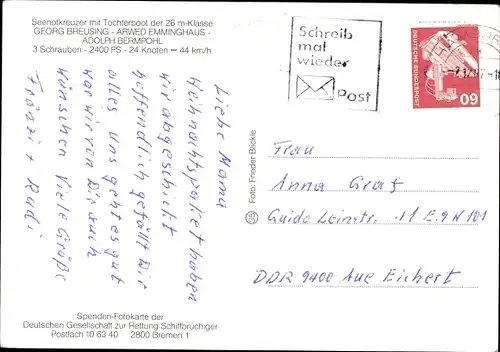 Seenotkreuzer mit Tochterboot der 26 m-Klasse
GEORG BREUSING - ARWED EMMINGHAUS -
ADOLPH BERMPOHL
3 Schrauben - 2400 PS - 24 Knoten — 44 km/h
Liebe Mama
Weihnachtspaket haben
wir abgeschickt
hoffendlich gefällt Dir
alles uns geht es gut
was wir von Dir auch
wünschen Viele Grüße
Fränzi + Rudi
Spenden-Fotokarte der
Deutschen Gesellschaft zur Rettung Schiffbrüchiger
Postfach 10 63 40 2800 Bremen 1
Foto: Frieder Blickle
Schreib
mal
wieder
Post
DEUTSCHE BUNDESPOST
60
Frau
Anna Graf
Guido Leinstr. 11 E.9 W 101
DDR 9400 Aue Eichert